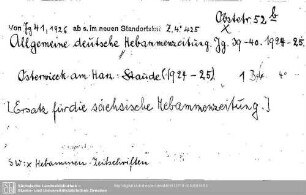 Obstetr. 52 b
x
Von Jg 41, 1926 ab s. im neuen Standortskat. Z. 4° 425
Allgemeine deutsche Hebammenzeitung. Jg. 39-40. 1924-25.
Osterwieck am Harz: Staude (1924-25). 4°
[Ersatz für die sächsische Hebammenzeitung.]
SW: x Hebammen-Zeitschriften
Sächsische Landesbibliothek -
Staats- und Universitätsbibliothek Dresden